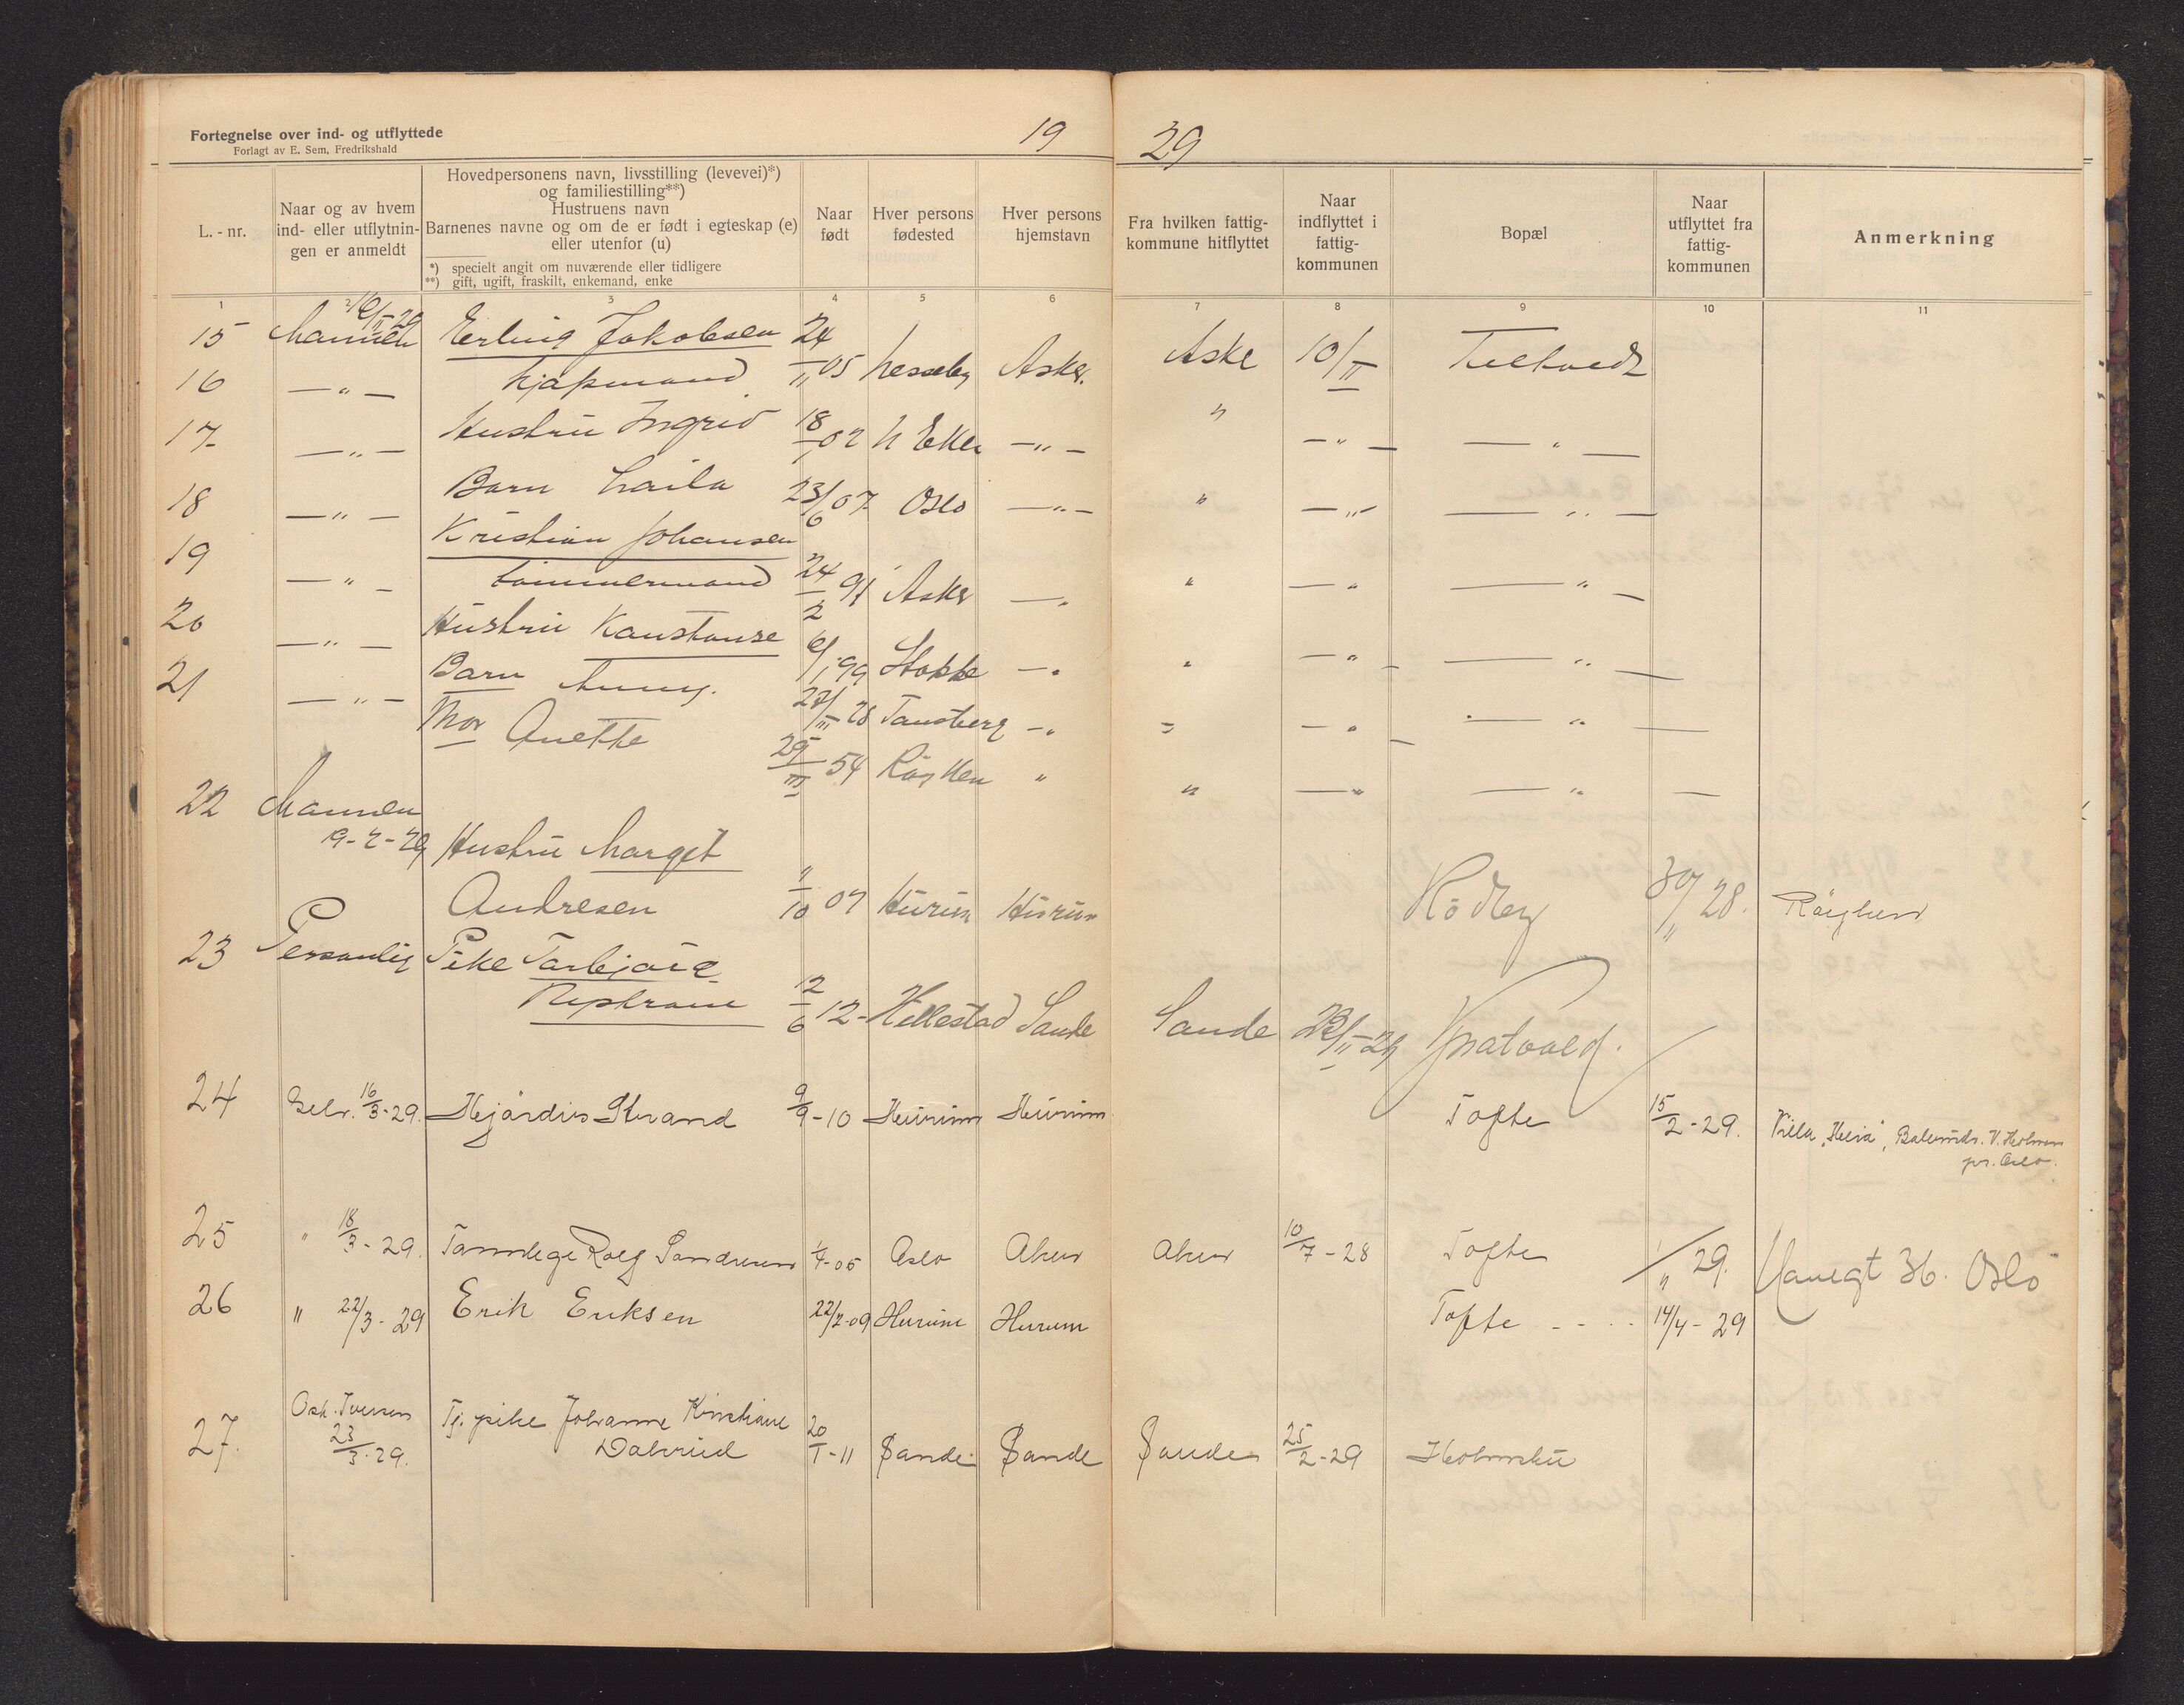 Fortegnelse over ind- og utflyttede
Forlagt av E. Sem, Fredrikshald
19 29
L. - nr.
Naar og av hvem ind- eller utflytnin- gen er anmeldt
Hovedpersonens navn, livsstilling (levevei)*)
og familiestilling**)
Hustruens navn
Barnenes navne og om de er født i egteskap (e)
eller utenfor (u)
*) specielt angit om nuværende eller tidligere
**) gift, ugift, fraskilt, enkemand, enke
Naar født
Hver persons fødested
Hver persons hjemstavn
Fra hvilken fattig- kommune hitflyttet
Naar indflyttet i fattig- kommunen
Bopæl
Naar utflyttet fra fattig- kommunen
Anmerkning
1 3 4 5 6 7 8 9 10 11
15 Mannen Erling Jakobsen 24/11 05 Asker. Aske 10/II
16 — " — kjøpmand
Hustru Ingrid 18/1 07 — " — " — " — — " —
17 — " —
Barn Laila 23/6 07 Oslo — " — " — " — — " —
18 — " —
Kristian Johansen
19 — " — tømmermand 24/2 91 Asker — " " — " — " —
20 — " — Hustru Konstanse 6/1 99 Stokke — " " — " — — " —
21 — " — Barn Anny. 28 Tønsberg — " — " — — " —
Mor Anette 29/III 54 Røyken " " — " — " —
22 Mannen
19-2-29 Hustru Marget
Andresen 10 07 Hurum Hurum Rødby 30/11 28. Røyken
23 Personlig Pike Torbjørg
12/6 12- Hillestad Sande Sande
24 Selv. 16/3-29. Hjørdis Strand 9/9-10 Hurum Hurum Tofte 15/2-29. Villa
pr. Oslo.
25 " 18/3-29. Tannlege Rolf 1/4-05 Oslo Aker Aker 10/7-28 Tofte 29. 36. Oslo
26 " 22/3-29 Erik Eriksen 22/2-09 Hurum Hurum Tofte - - - - 14/4-29
27. Osk. Iversen
23/3-29. Tj. pike Johanne Kristiane
Dalsrud 20/1-11 Sande Sande Sande 25/2-29